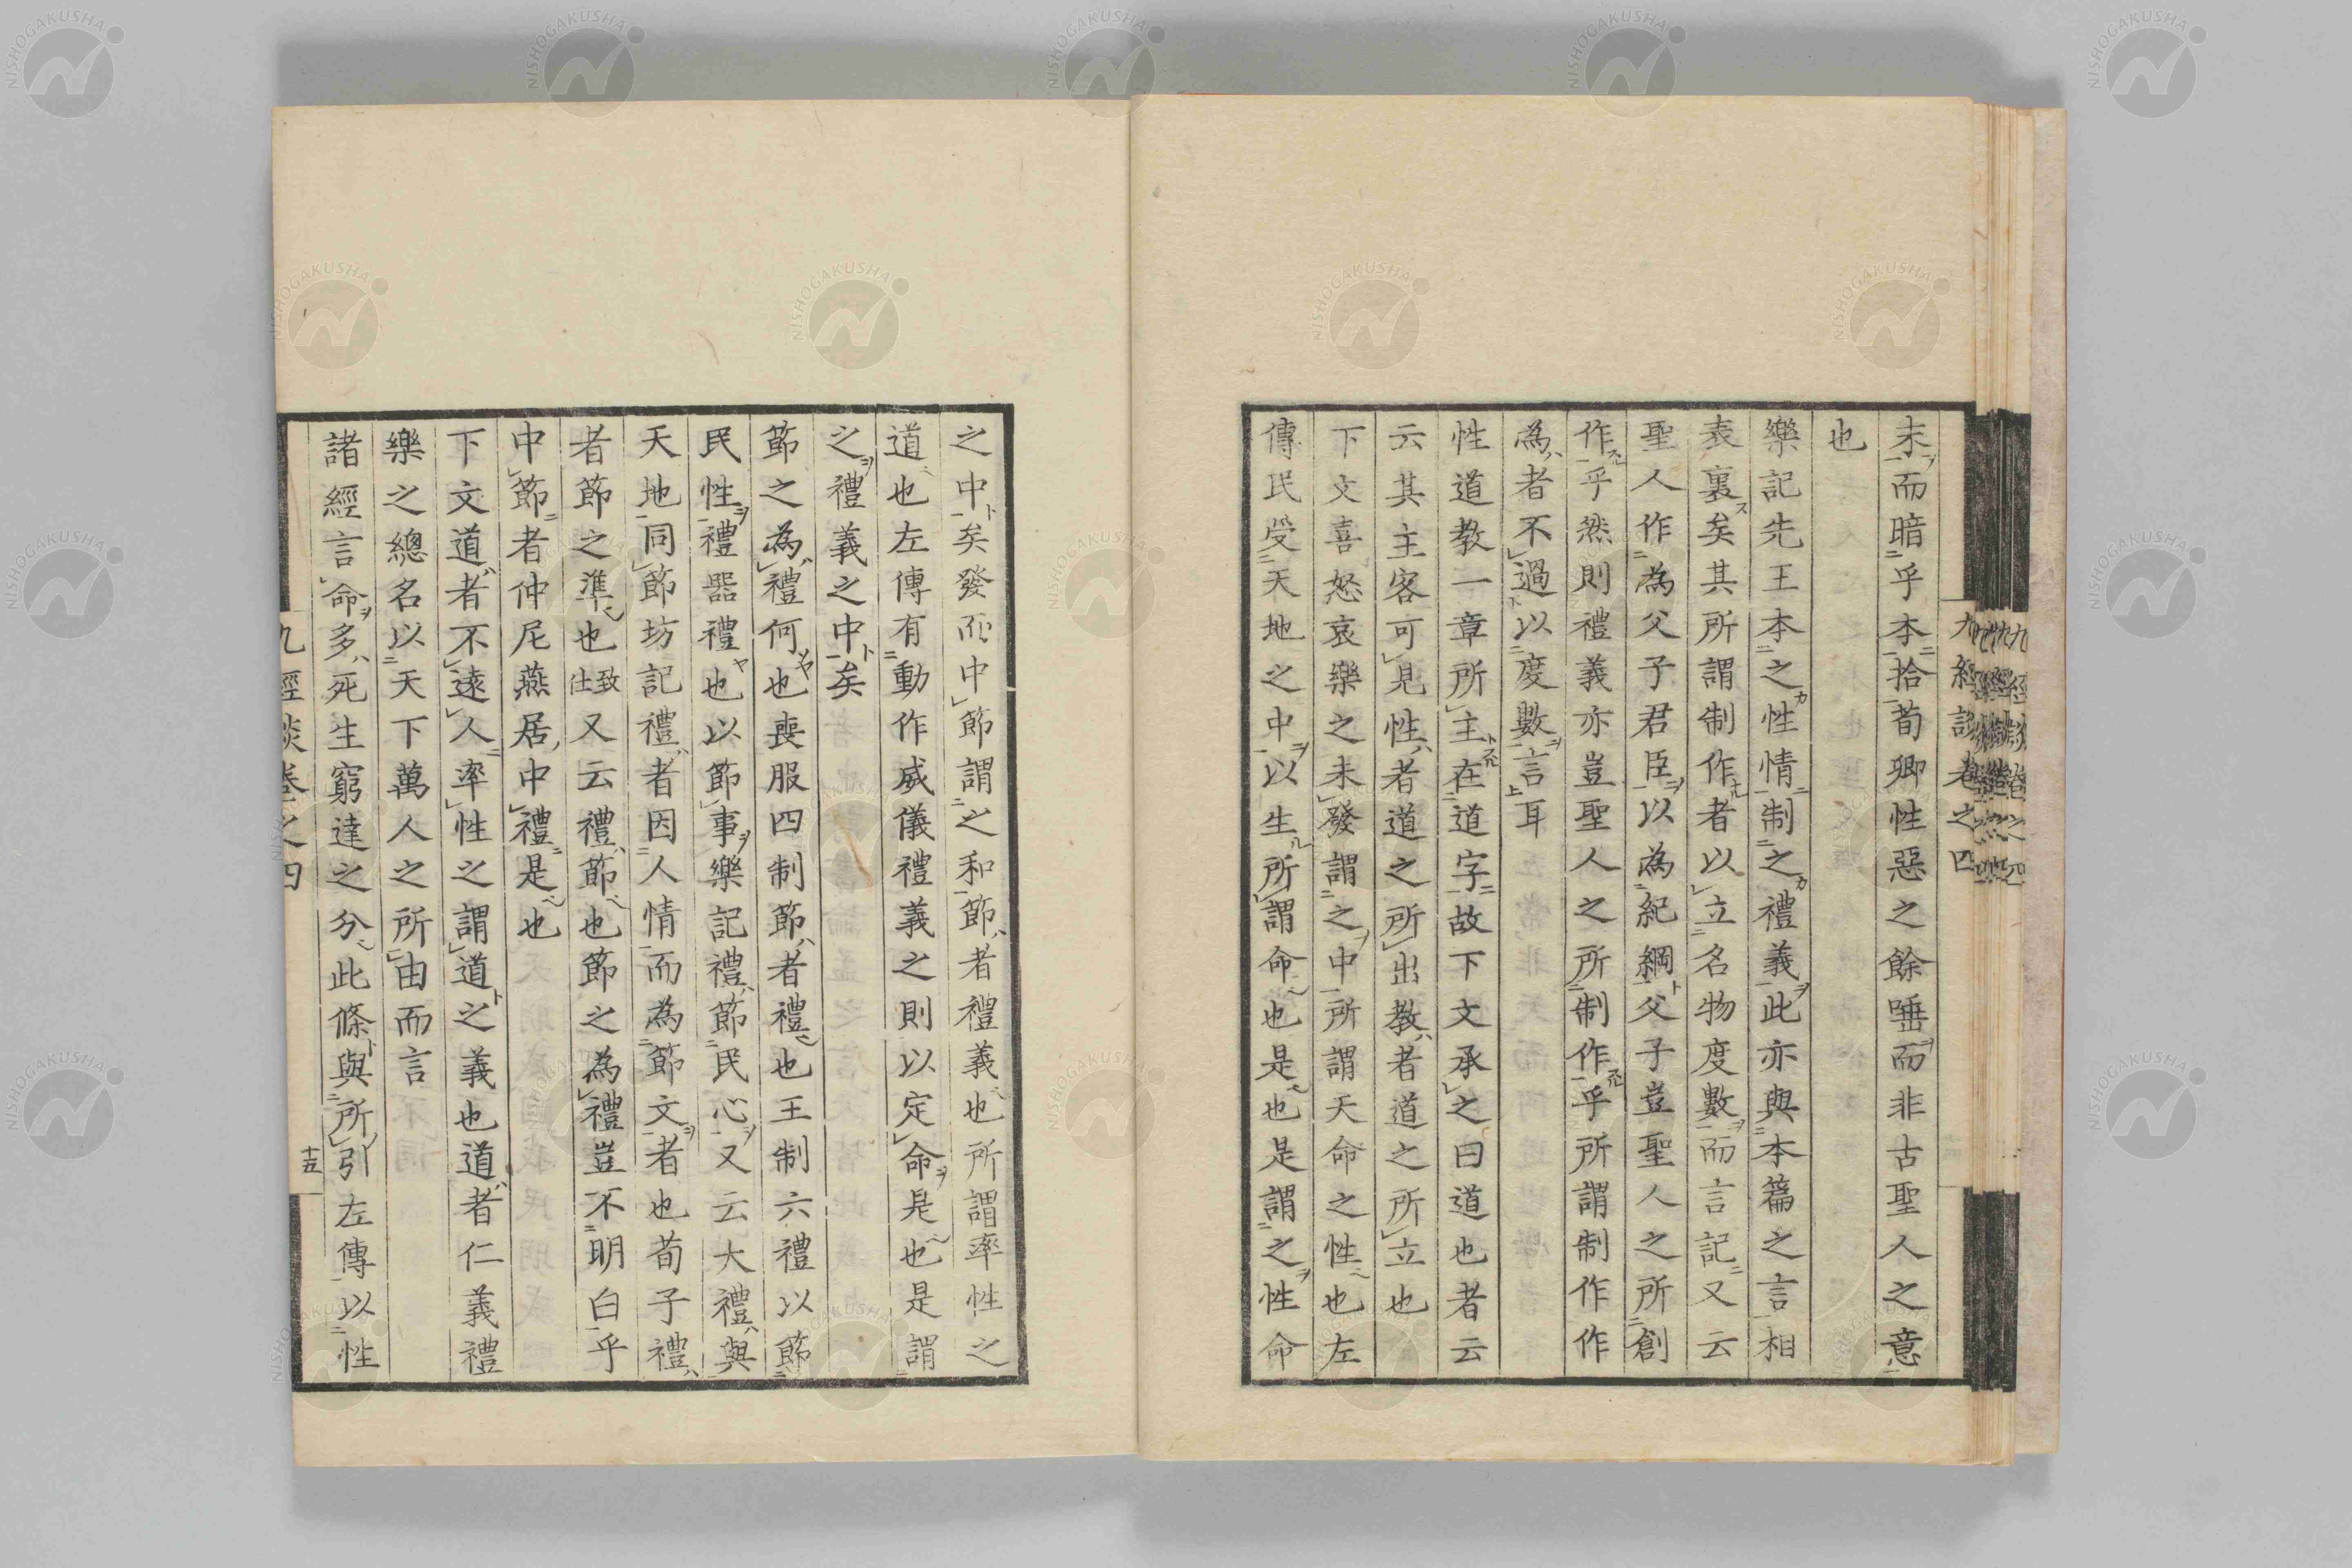 末而暗乎本拾荀卿性惡之餘唾而非古聖人之意
也
樂記先王本之性情制之禮義此亦與本篇之言相
表裏矣其所謂制作者以立名物度數而言記又云
聖人作為父子君臣以為紀綱父子豈聖人之所創
作乎然則禮義亦豈聖人之所制作乎所謂制作作
為者不過以度數言耳
性道教一章所主在道字故下文承之曰道也者云
云其主客可見性者道之所出教者道之所立也
下文喜怒哀樂之未發謂之中所謂天命之性也左
傳民受天地之中以生所謂命也是也是謂之性命
之中矣發而中節謂之和節者禮義也所謂率性之
道也左傳有動作威儀禮義之則以定命是也是謂
之禮義之中矣
節之為禮何也喪服四制節者禮也王制六禮以節
民性禮器禮也以節事樂記禮節民心又云大禮與
天地同節坊記禮者因人情而為節文者也荀子禮
者節之準也致仕又云禮節也節之為禮豈不明白乎
中節者仲尼燕居中禮是也
下文道者不遠人率性之謂道之義也道者仁義禮
樂之總名以天下萬人之所由而言
諸經言命多死生窮達之分此條與所引左傳以性
九經談卷之四
十五
NISHOGAKUSHA